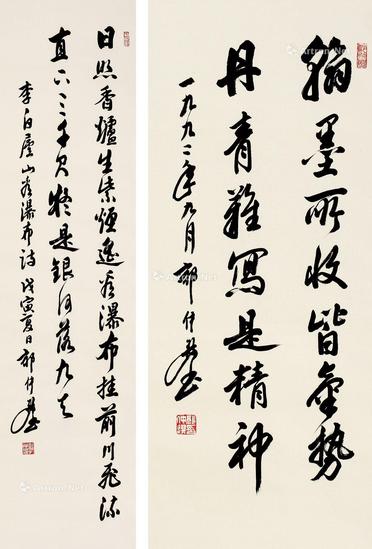 翰墨所收皆氣勢
丹青難寫是精神
一九九二年九月 郭仲選
日照香爐生紫煙遙看瀑布挂前川飛流
直下三千尺疑是銀河落九天
李白廬山看瀑布詩 戊寅夏日郭仲選